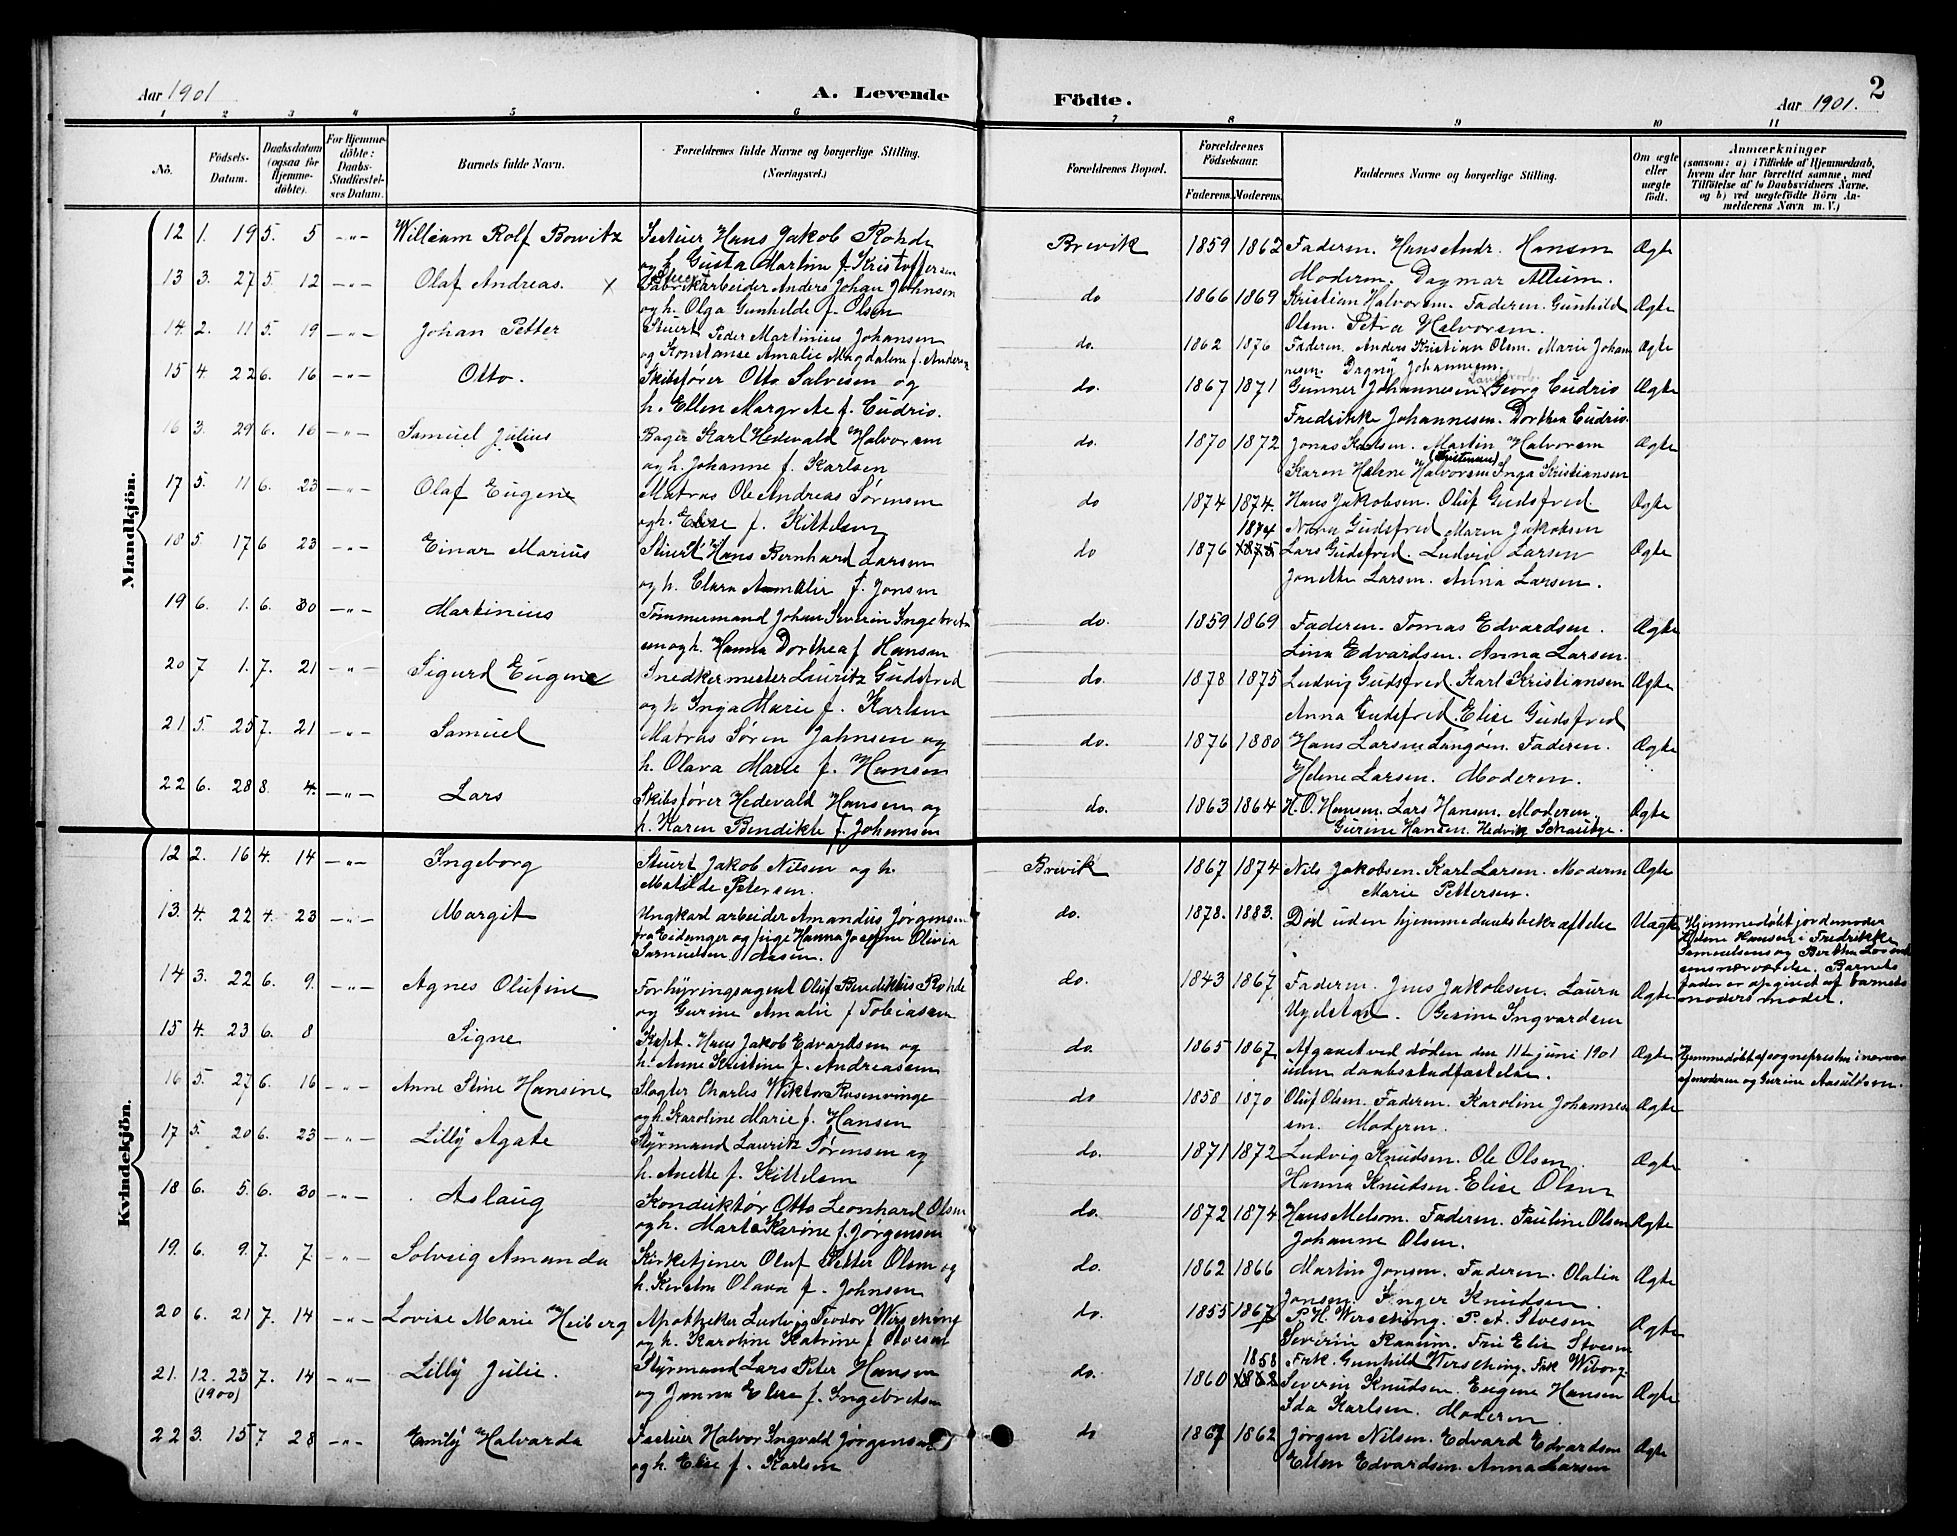 Aar 1901
A. Levende
Födte.
Aar 1901.
2
1 2 3 4 5 6 7 8 9 10 11
No.
Födsels-Datum.
Daabsdatum (ogsaa for Hjemme-döbte).
For Hjemme-döbte: Daabs-Stadfæstelses Datum.
Barnets fulde Navn.
Forældrenes fulde Navne og borgerlige Stilling. (Næringsvei.)
Forældrenes Bopæl.
Forældrenes Födselsaar.
Faderens. Moderens.
Faddernes Navne og borgerlige Stilling.
Om ægte eller uægte födt.
Anmærkninger
(saasom: a) i Tilfælde af Hjemmedaab, hvem der har forrettet samme, med Tilföielse af to Daabsvidners Navne. og b) ved uægtefödte Börn Anmelderens Navn m. V.)
Mandkjön.
12 1. 19 5. 5 -"- William Rolf Bowitz Hans Jakob Rohde Brevik 1859 1862 Faderen. Hans Andr. Hansen Ægte
og h. Gusta Martine f. Kristoffersen Moderen. Dagmar Allum.
13 3. 27 5. 12 -"- Olaf Andreas. x Fabrikarbeider Anders Johan Johnsen do 1866 1869 Kristian Halvorsen. Faderen. Gunhild Ægte
og h. Olga Gunhilde f. Olsen Olsen. Petra Halvorsen.
14. 2. 11 5. 19 -"- Johan Petter Stuert Peder Martinius Johansen do. 1862 1876 Faderen. Anders Kristian Olsen. Marie Johan Ægte
og Konstanse Amalie Magdalena f. Andersen nesen. Dagny Johannesen.
15 4. 22 6. 16 -"- Otto. Skibsfører Otto Salvesen og do. 1867 1871 Gunner Johannesen Georg Cudrio Ægte
h. Ellen Margrete f. Cudrio. Fredrikke Johannesen. Dorthea Cudrio.
16 3. 29 6. 16 -"- Samuel Julius Bager Karl Hedevald Halvorsen do. 1870 1872 Jonas Karlsen. Martin Halvorsen Ægte
og h. Johanne f. Karlsen (Kristensen) Karen Helene Halvorsen Inga Kristiansen
17 5. 11 6. 23 -"- Olaf Eugene Matros Ole Andreas Sørensen do 1874 1874. Hans Jakobsen. Oluf Gudsfred. Ægte
og h. Elise f. Kittelsen Gudsfred Maren Jakobsen
18 5. 17 6 23 -"- Einar Marius Stuert Hans Bernhard Larsen do 1876 1874 1875 Lars Gudsfred. Ludvig Larsen Ægte
og h. Clara Amalie f. Jonsen Jonette Larsen. Anna Larsen.
19 6. 1. 6. 30 -"- Martinius Tømmermand Johan Severin Ingebret do. 1859 1869 Faderen. Tomas Edvardsen. Ægte
sen og h. Hanna Dorthea f. Hansen Lina Edvardsen. Anna Larsen.
20 7 1. 7. 21 -"- Sigurd Eugene Snedkermester Lauritz Gudsfred do. 1878 1875 Ludvig Gudsfred. Karl Kristiansen Ægte
og h. Inga Marie f. Karlsen Anna Gudsfred. Elise Gudsfred
21 5. 25 7. 21 -"- Samuel Matros Søren Johnsen og do. 1876 1880 Hans Larsen Langøen. Faderen. Ægte
h. Olava Marie f. Hansen Helene Larsen. Moderen.
22 6. 28 8. 4. -"- Lars Skibsfører Hedevald Hansen og do. 1863 1864 H. O. Hansen. Lars Hansen. Moderen. Ægte
h. Karen Bendikte f. Johansen Gurine Hansen. Hedvik
Kvindekjön.
12 2. 16 4. 14 -"- Ingeborg Stuert Jakob Nilsen og h. Brevik 1867 1874 Nils Jakobsen. Karl Larsen. Moderen Ægte
Matilde Petersen. Marie Pettersen.
13. 4. 22 4. 23 -"- Margit Ungkarl arbeider Amandus Jørgensen do. 1878. 1883. Død uden hjemmedaabsbekræftelse Uægte Hjemmedøbt jordemoder
fra Eidanger og pige Hanna Josefine Olivia Helene Hansen i Fredrikke
Samuelsen Aasen. Samuelsens og Bertha
sens nærværelse. Barnets
fader er opgivet af barnets
moders moder.
14 3. 22 6. 9. -"- Agnes Olufine Forhyringsagent Oluf Benediktus Rohde do. 1843 1867 Faderen. Jens Jakobsen. Laura Ægte
og Gurine Amalie f Tobiasen Gesine Ingvardsen
15 4. 23 6. 8 Signe Kapt. Hans Jakob Edvardsen og do. 1865 1867 Afgaaet ved døden den 11te juni 1901 Ægte Hjemmedøbt af sognepresten i nærvær
h. Anne Kristine f. Andreasen uden daabsstadfæstelse. af moderen og Gurine Aasuldsen.
16 5. 27 6. 16 -"- Anne Stine Hansine Slagter Charles Wiktor Rosenvinge do 1858 1870 Oluf Olsen. Faderen. Karoline Johannes Ægte
og h. Karoline Marie f. Hansen sen. Moderen.
17 5. 20 6. 23 -"- Lilly Agate Styrmand Lauritz Sørensen og do. 1871 1872 Ludvig Knudsen. Ole Olsen. Ægte
h. Anette f. Kittelsen Hanna Knudsen. Elise Olsen
18 6. 5. 6. 30 -"- Aslaug Konduktør Otto Leonhard Olsen do. 1872 1874 Hans Melsom. Faderen. Pauline Olsen Ægte
og h. Marte Karine f. Jørgensen Johanne Olsen.
19. 6. 9. 7. 7. -"- Solveig Amanda Kirketjener Oluf Petter Olsen og do. 1862 1866 Martin Jonsen. Faderen. Olalia Ægte
h. Kirsten Olava f. Johnsen Jonsen. Inger Knudsen.
20 6. 21 7. 14 -"- Lovise Marie Heiberg Apotheker Ludvig Teodor Wersching do. 1855 1867 P. H. Wersching. P. A. Stoesen Ægte
og h. Karoline Katrine f Stoesen Severin Raaum. Frk Elie Stoesen
Frk. Gunhild Wersching. Frk Wiborg.
21. 12. 23 (1900) 7. 14 -"- Lilly Julie. Styrmand Lars Peter Hansen do. 1860 1858 1862 Severin Knudsen. Eugene Hansen Ægte
og Janna Elise f. Ingebretsen Ida Karlsen. Moderen.
22 3. 15 7 28 -"- Emily Halvarda Halvor Ingvald Jørgensen do 1867 1862 Jørgen Nilsen. Edvard Edvardsen Ægte
og h. Elise f. Karlsen Ellen Edvardsen. Anna Larsen